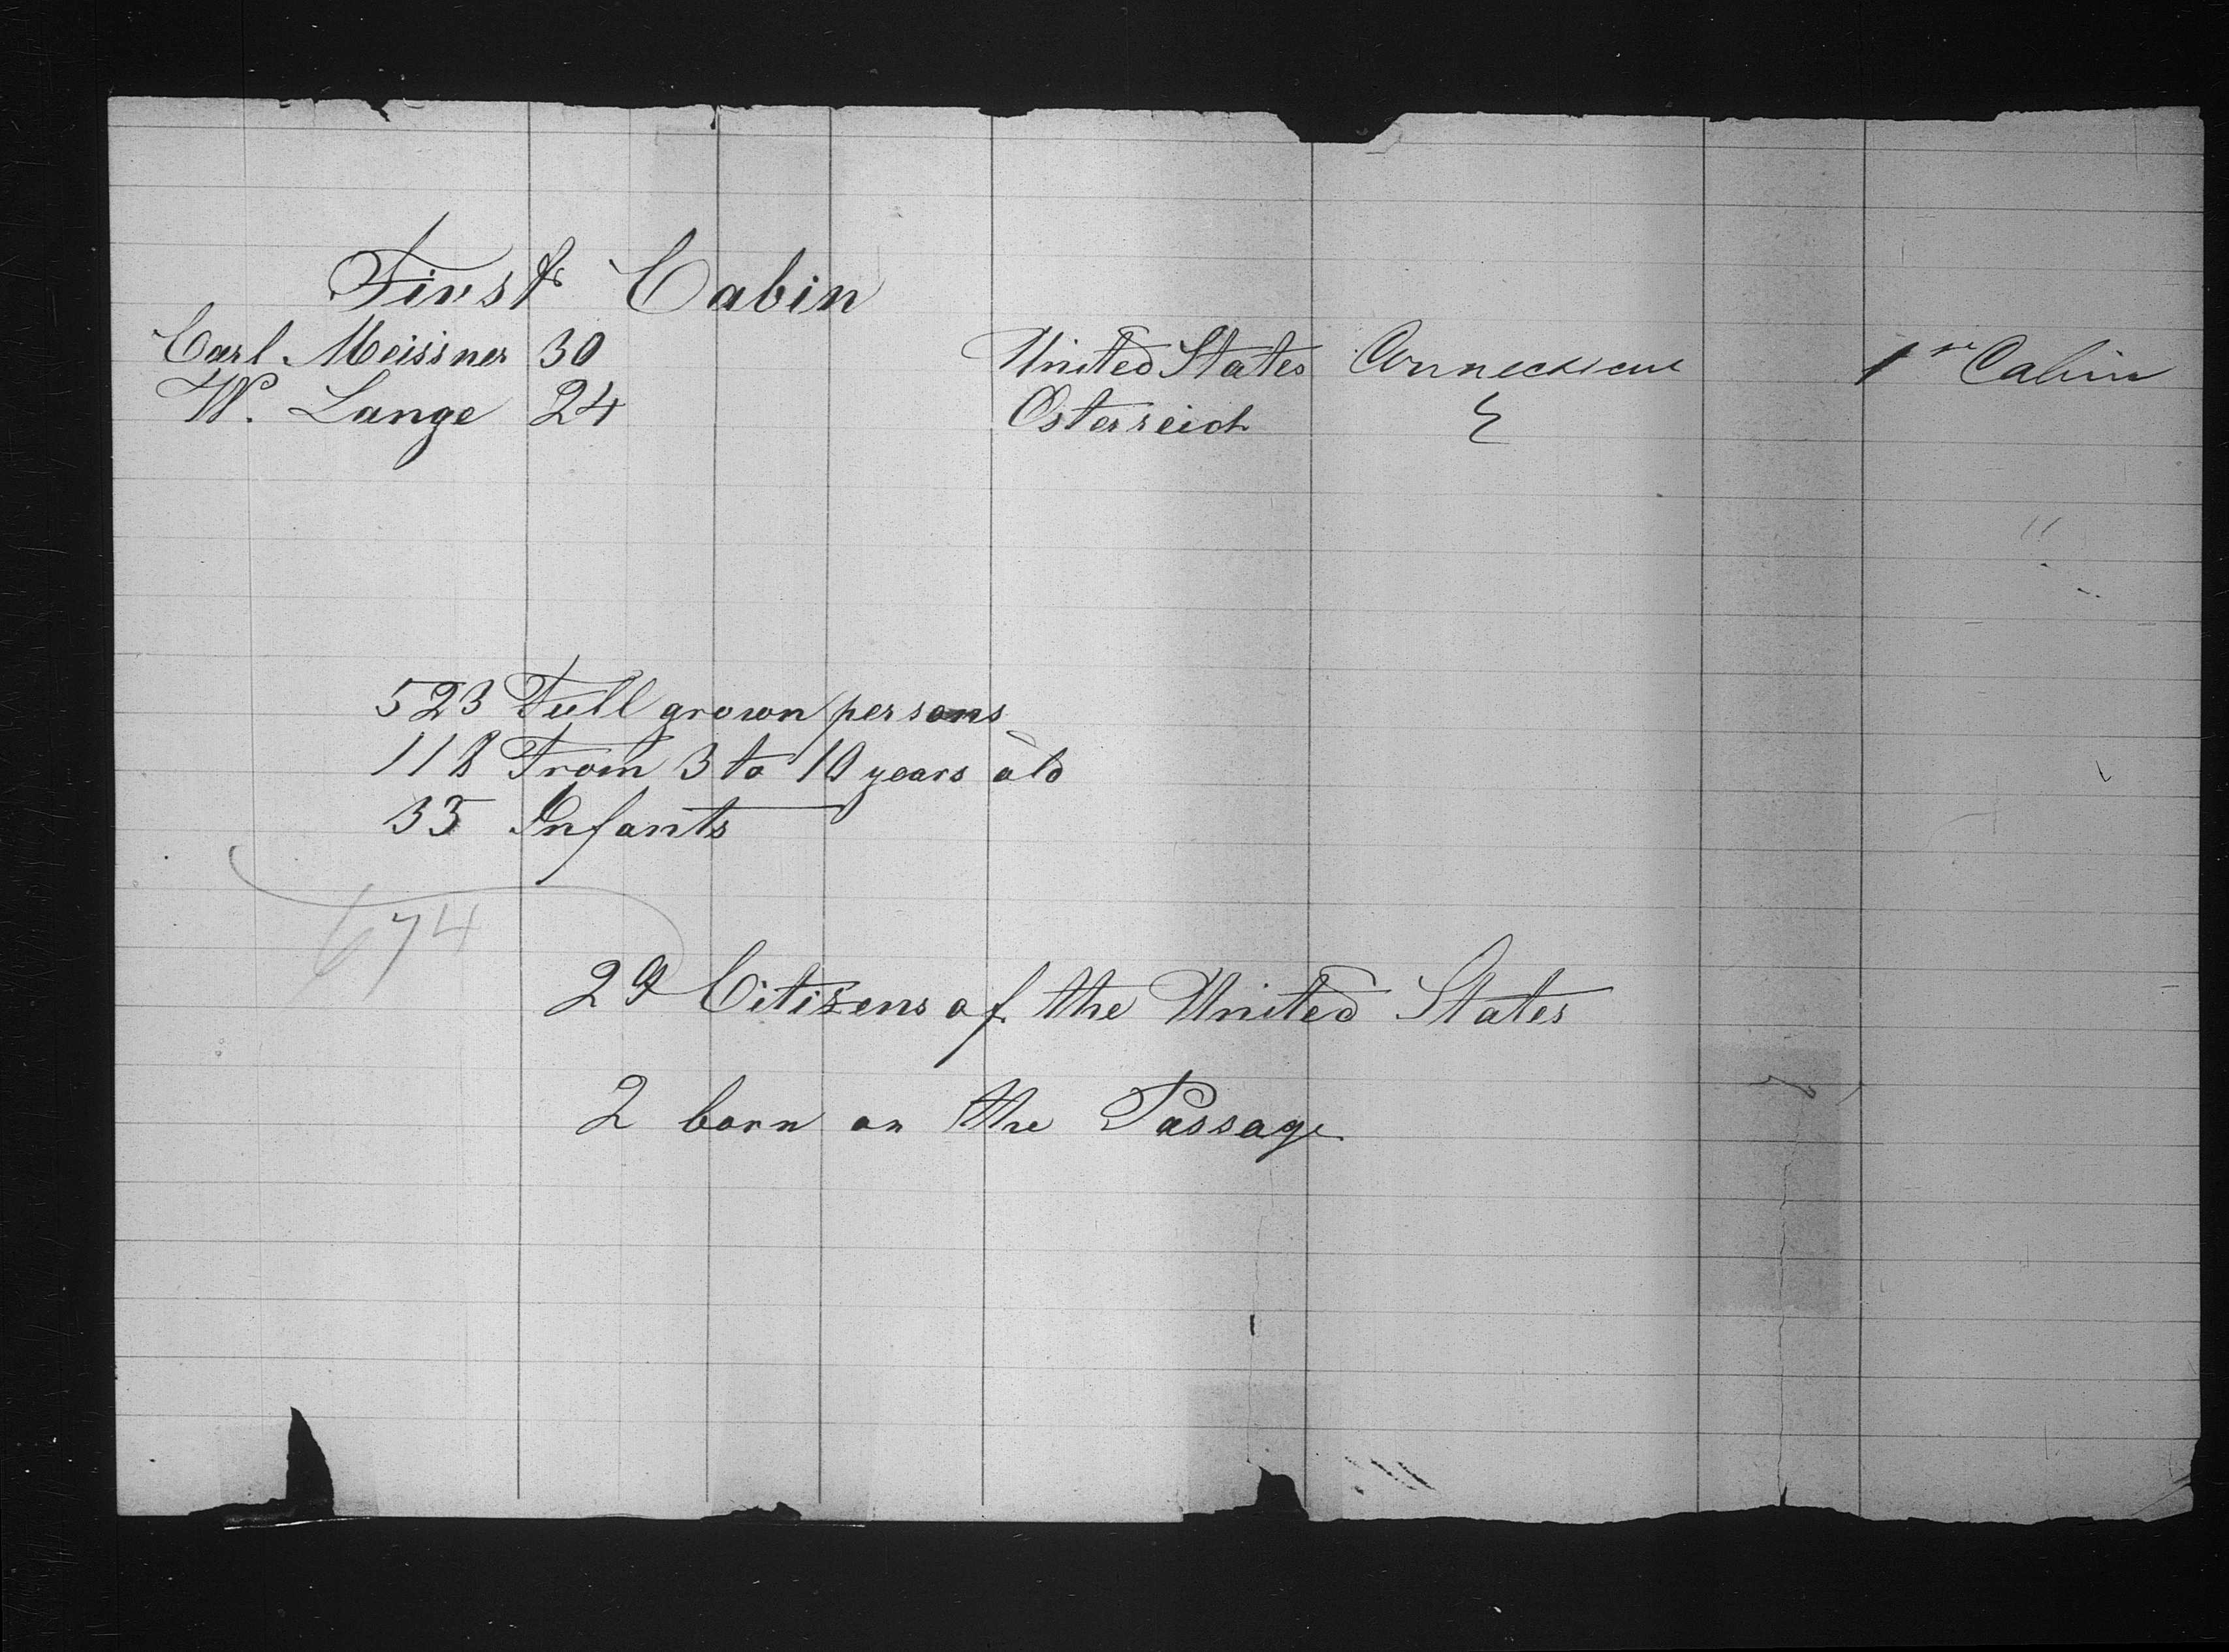 First Cabin
Carl Meissner 30 United States Connecticut 1st Cabin
W. Lange 24 Osterreich
523 Full grown persons
118 From 3 to 10 years old
33 Infants
674
29 Citizens of the United States
2 born on the Passage